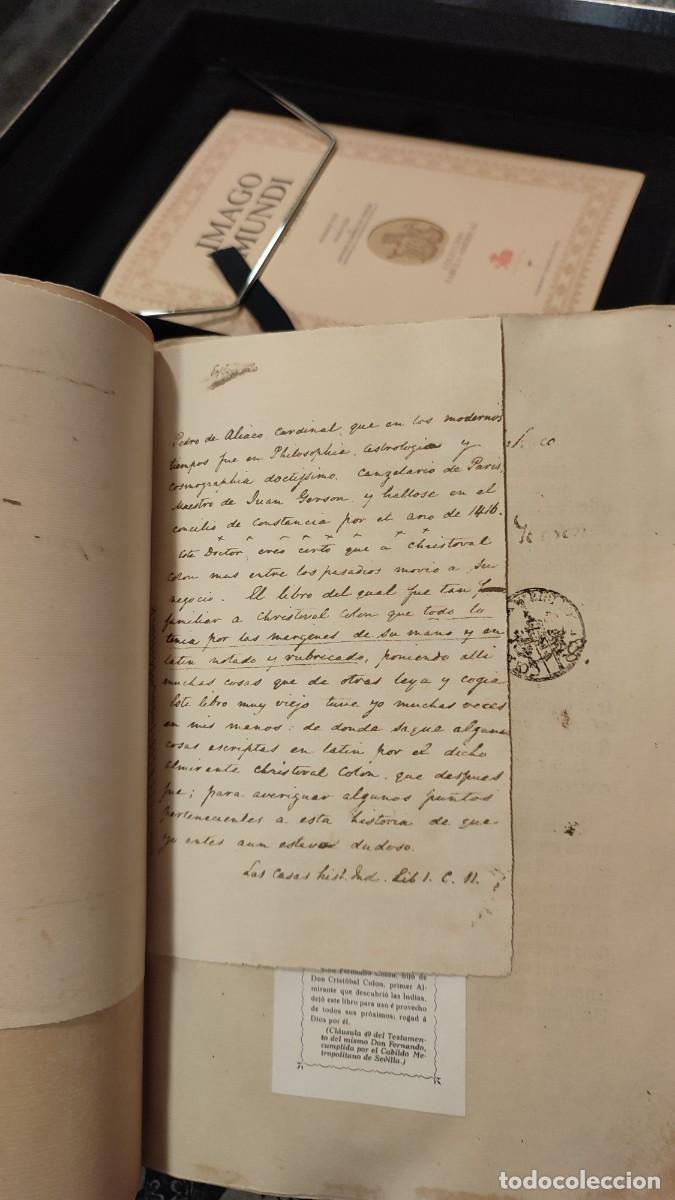 IMAGO
MUNDI
Pedro de Aliaco Cardinal, que en los modernos
tiempos fue en Philosophia, astrologia y
cosmographia doctissimo, canzelario de Paris,
Maestro de Juan Gerson, y hallose en el
concilio de Constancia por el ano de 1416.
este Doctor, creo cierto que a Christoval
Colon mas entre los pasados movio a su
negocio. El libro del qual fue tan
familiar a Christoval Colon que todo lo
tenia por las margenes de su mano y en
latin notado y rubricado, poniendo alli
muchas cosas que de otras leya y cogia
Este libro muy viejo tuve yo muchas veces
en mis manos: de donde saque algunas
cosas escriptas en latin por el dicho
almirante Christoval Colon, que despues
fue; para averiguar algunos puntos
pertenecientes a esta historia de que
yo antes aun estava dudoso.
Las Casas hist. Ind. Lib 1. C. 11.
Don Fernando Colon, hijo de
Don Cristóbal Colon, primer Al-
mirante que descubrió las Indias,
dejó este libro para uso é provecho
de todos sus próximos; rogad á
Dios por él.
(Cláusula 49 del Testamen-
to del mismo Don Fernando,
cumplida por el Cabildo Me-
tropolitano de Sevilla.)
todocoleccion